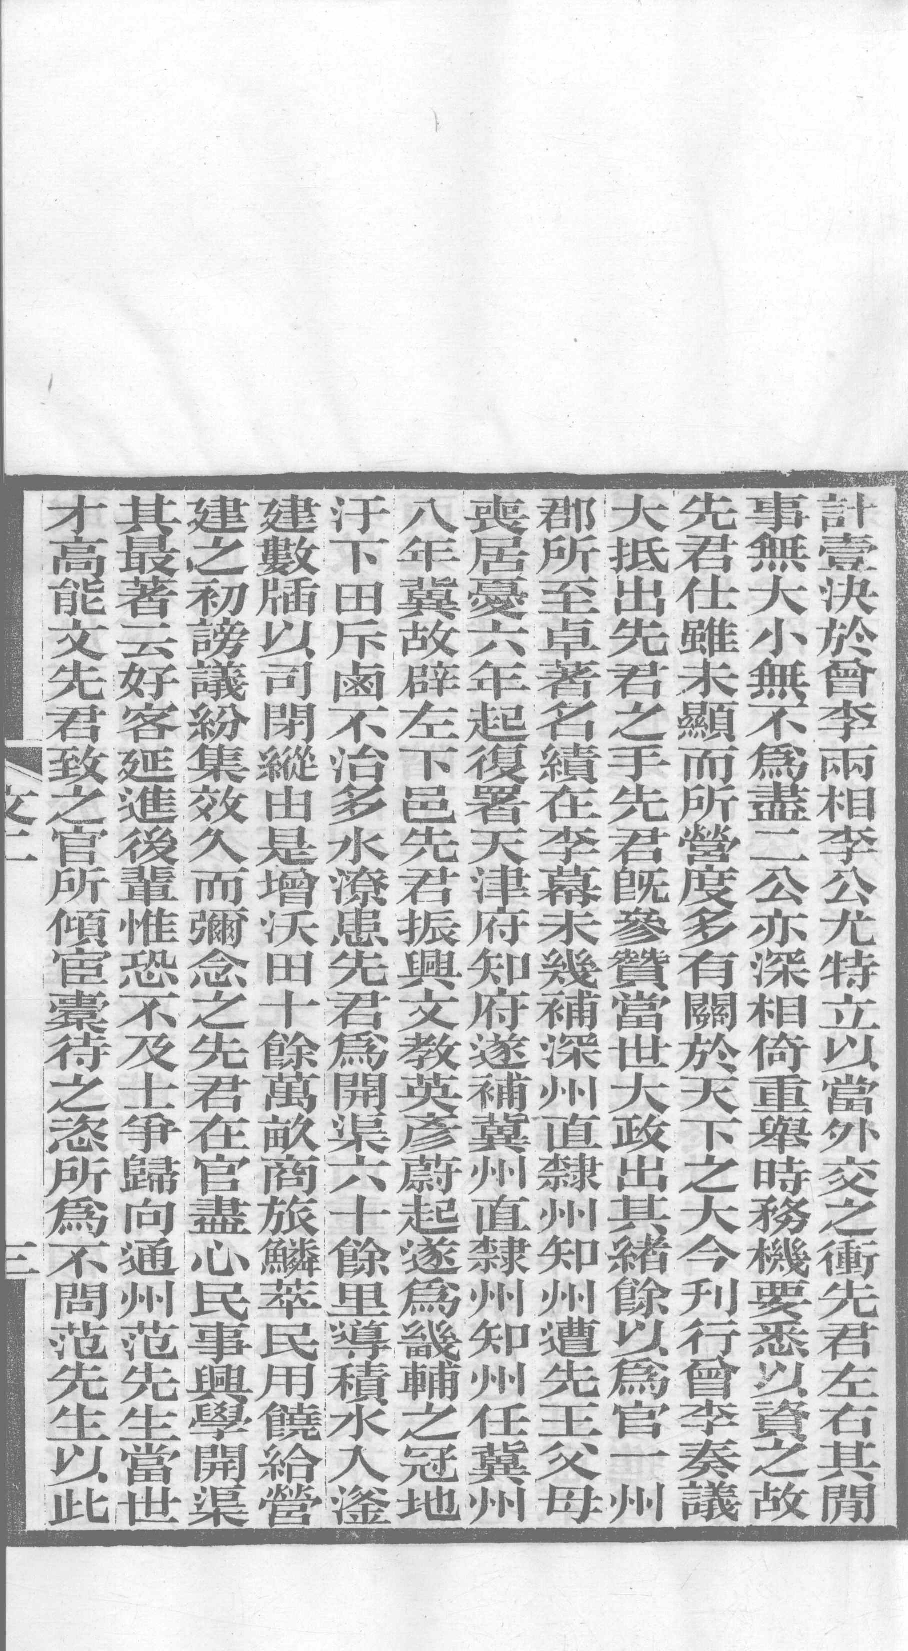 計壹決於曾李兩相李公尤特立以當外交之衝先君左右其閒
事無大小無不爲盡二公亦深相倚重舉時務機要悉以資之故
先君仕雖未顯而所營度多有關於天下之大今刊行曾李奏議
大抵出先君之手先君旣參贊當世大政出其緖餘以爲官一州
郡所至卓著名績在李幕未幾補深州直隸州知州遭先王父母
喪居憂六年起復署天津府知府遂補冀州直隸州知州任冀州
八年冀故辟左下邑先君振興文教英彥蔚起遂爲畿輔之冠地
汙下田斥鹵不治多水潦患先君爲開渠六十餘里導積水入滏
建數牐以司閉縱由是增沃田十餘萬畝商旅鱗萃民用饒給營
建之初謗議紛集效久而彌念之先君在官盡心民事興學開渠
其最著云好客延進後輩惟恐不及士爭歸向通州范先生當世
才高能文先君致之官所傾宦橐待之恣所爲不問范先生以此
文二
三